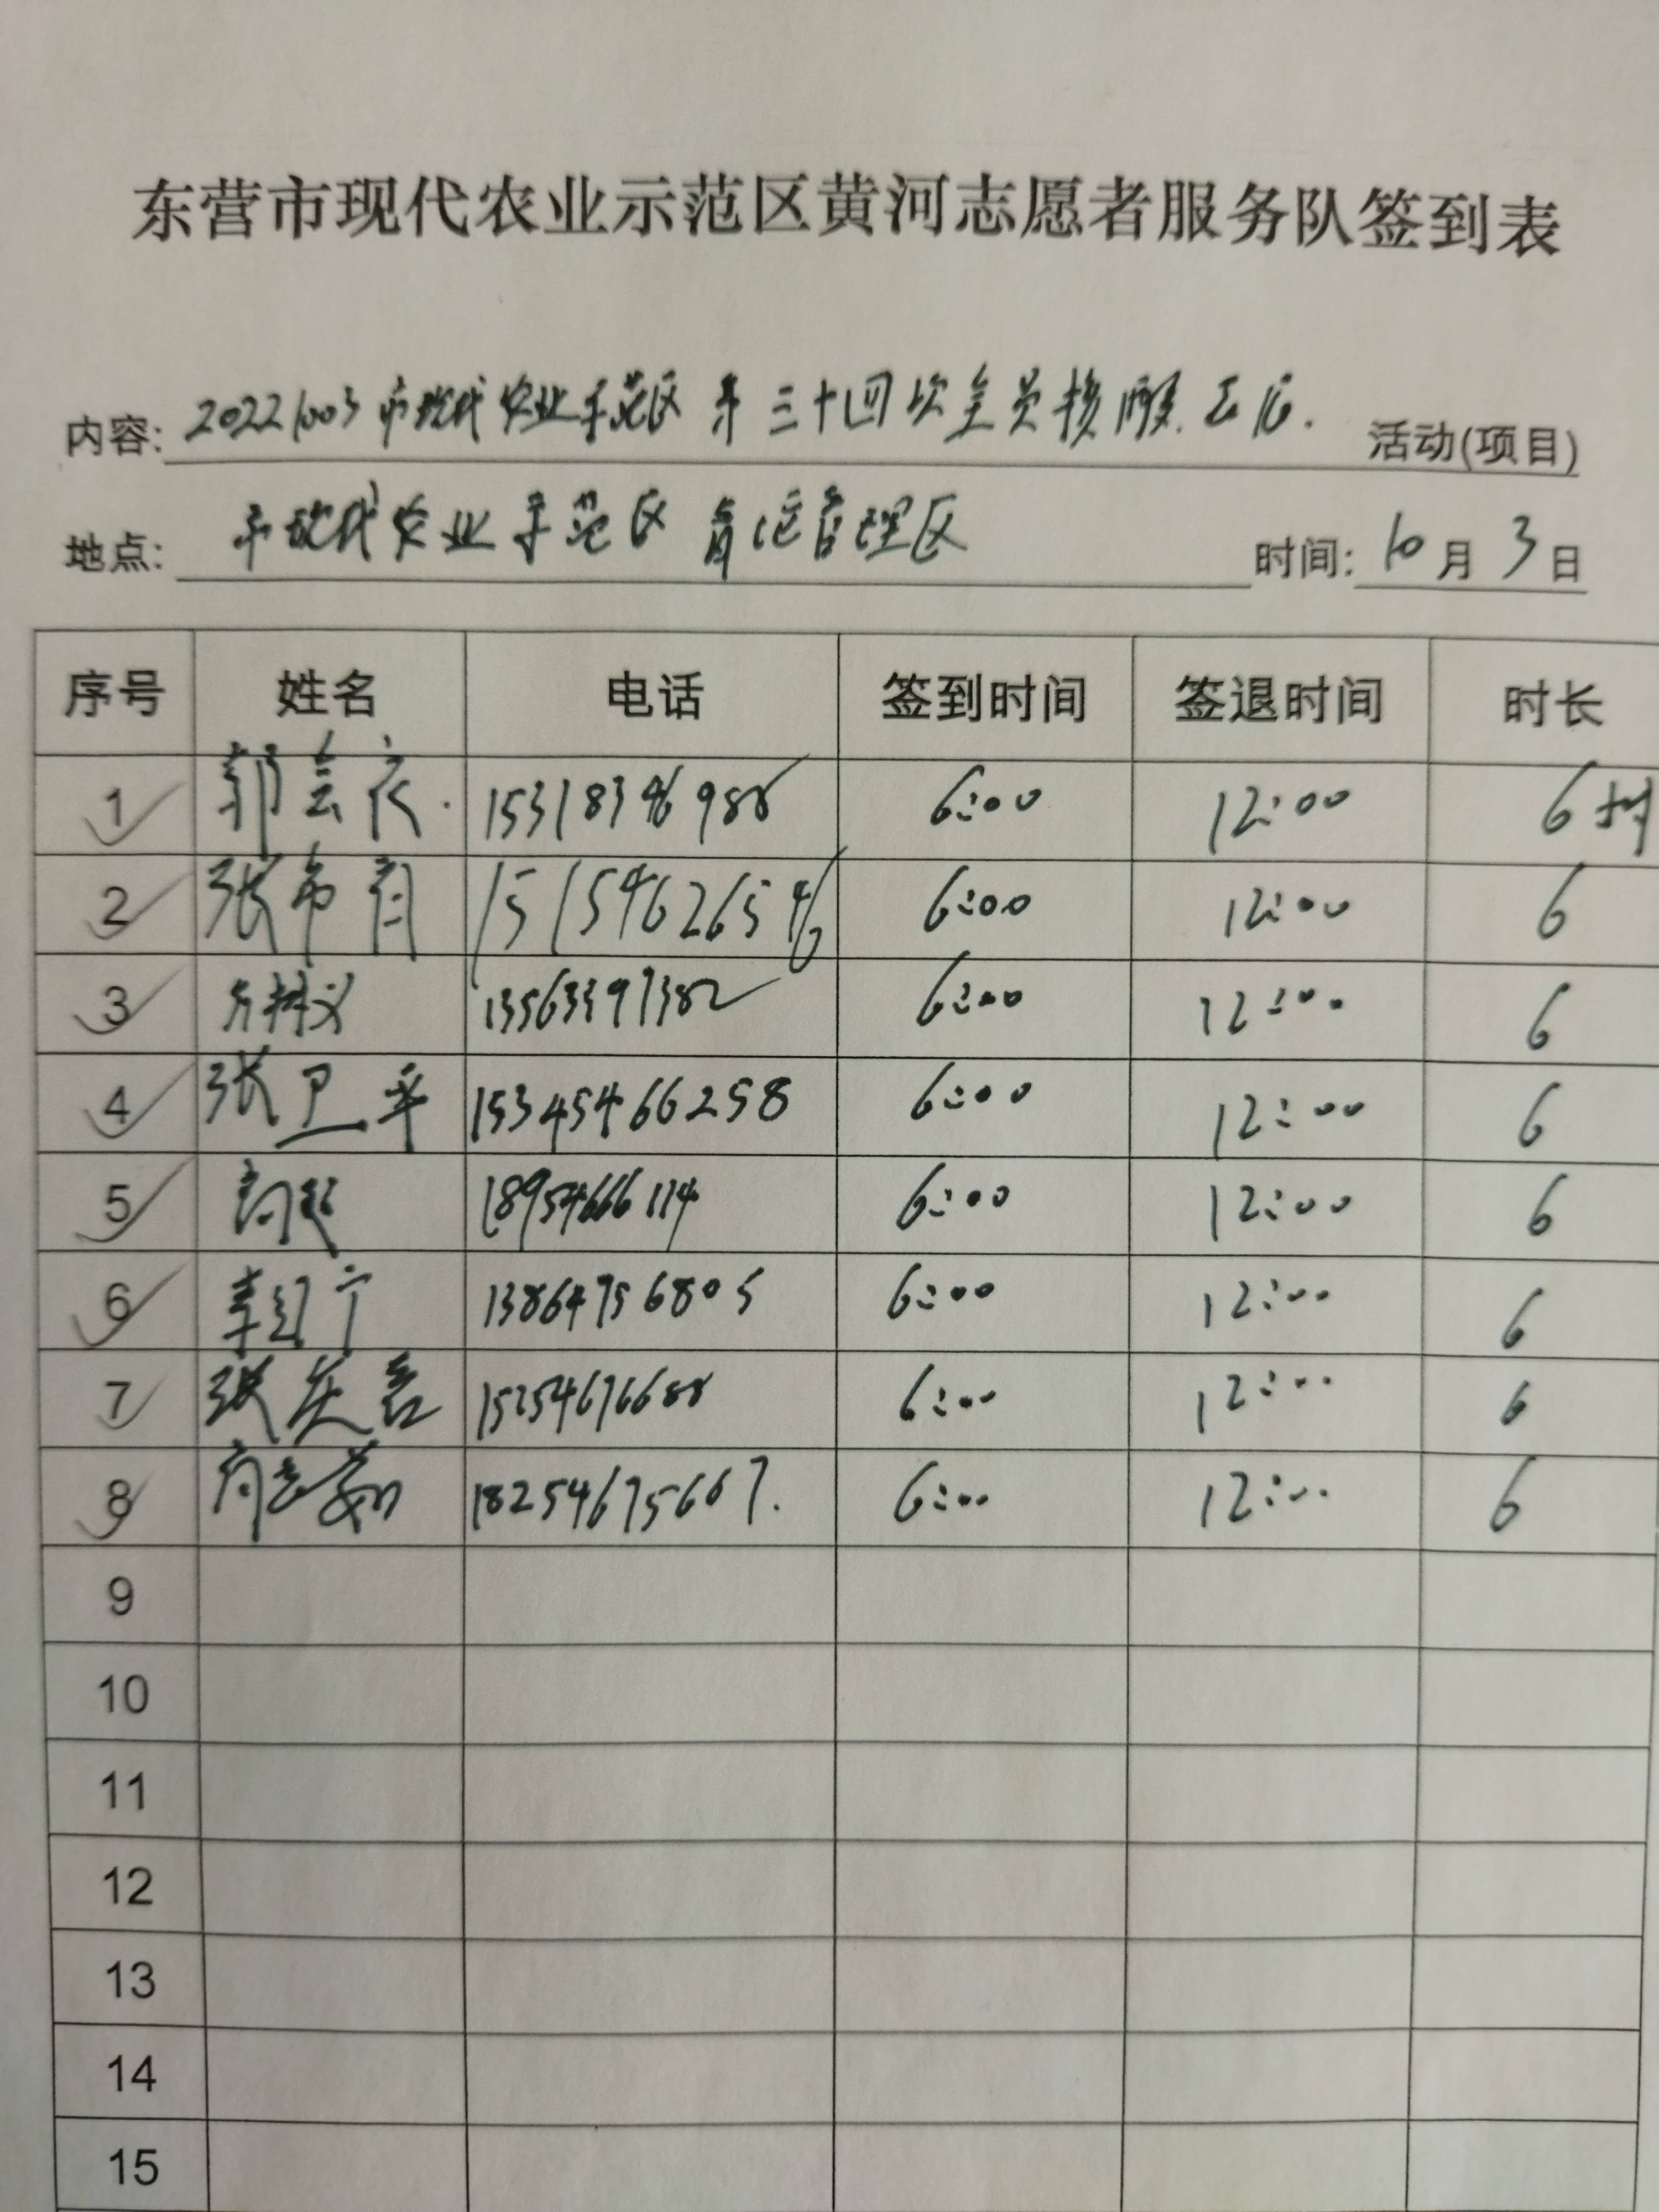 东营市现代农业示范区黄河志愿者服务队签到表
内容: 20221003市现代农业示范区第三十四次全员核酸 活动(项目)
地点: 市现代农业示范区 管理区 时间: 10月3日
序号 姓名 电话 签到时间 签退时间 时长
1 郭 15318346988 6:00 12:00 6时
2 张 15154626546 6:00 12:00 6
3 13563397382 6:00 12:00 6
4 张卫平 15345466258 6:00 12:00 6
5 18954666114 6:00 12:00 6
6 13864756805 6:00 12:00 6
7 张 15254676688 6:00 12:00 6
8 18254675667. 6:00 12:00 6
9
10
11
12
13
14
15